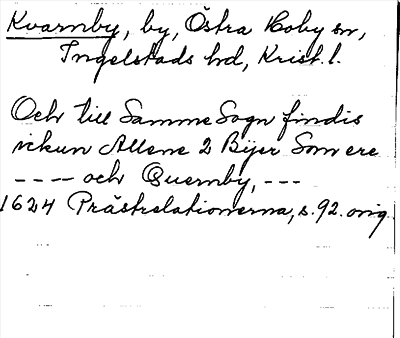 Kvarnby, by, Östra Hoby sn,
Ingelstads hd, Krist. l.
Och till Samme Sogn findis
ickun Allene 2 Bijer Som ere
---- och Quernby, ---
1624 Prästrelationerna, s. 92. orig.